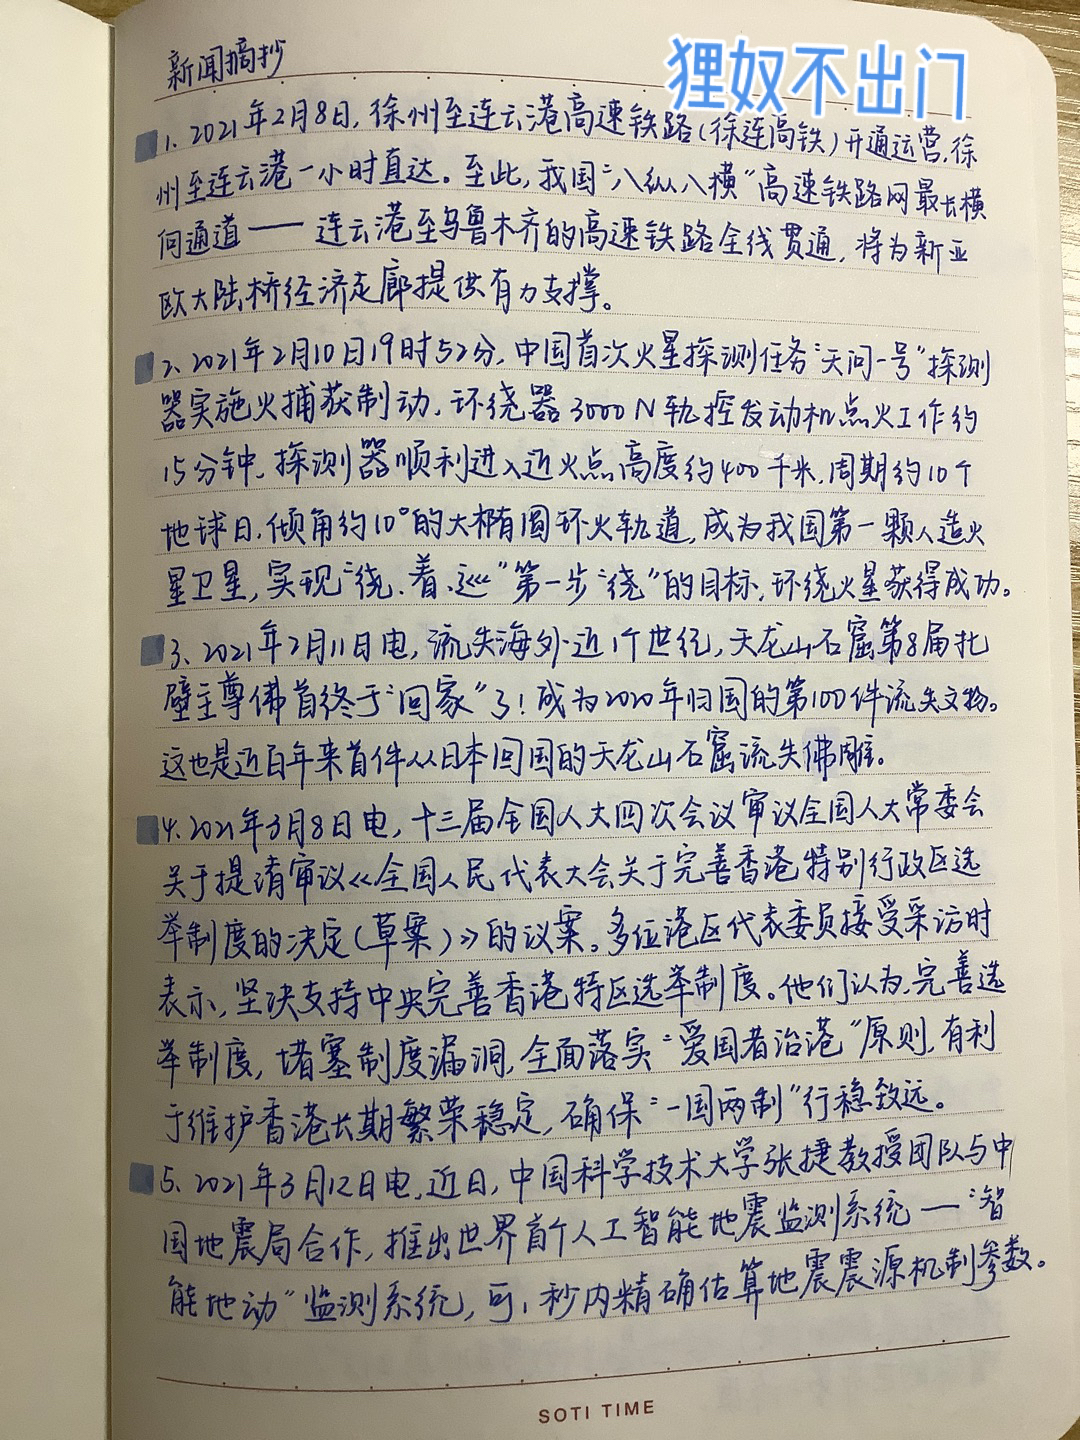 狸奴不出门
新闻摘抄
1. 2021年2月8日，徐州至连云港高速铁路（徐连高铁）开通运营，徐
州至连云港一小时直达。至此，我国“八纵八横”高速铁路网最长横
向通道——连云港至乌鲁木齐的高速铁路全线贯通，将为新亚
欧大陆桥经济走廊提供有力支撑。
2、2021年2月10日19时52分，中国首次火星探测任务“天问一号”探测
器实施火捕获制动，环绕器3000N轨控发动机点火工作约
15分钟，探测器顺利进入近火点高度约400千米，周期约10个
地球日，倾角约10°的大椭圆环火轨道，成为我国第一颗人造火
星卫星，实现“绕、着、巡”第一步“绕”的目标，环绕火星获得成功。
3、2021年2月11日电，流失海外近1个世纪，天龙山石窟第8届北
壁主尊佛首终于“回家”了！成为2020年归国的第100件流失文物。
这也是近百年来首件从日本回国的天龙山石窟流失佛雕。
4、2021年3月8日电，十三届全国人大四次会议审议全国人大常委会
关于提请审议《全国人民代表大会关于完善香港特别行政区选
举制度的决定（草案）》的议案。多位港区代表委员接受采访时
表示，坚决支持中央完善香港特区选举制度。他们认为，完善选
举制度，堵塞制度漏洞，全面落实“爱国者治港”原则，有利
于维护香港长期繁荣稳定，确保“一国两制”行稳致远。
5、2021年3月12日电，近日，中国科学技术大学张捷教授团队与中
国地震局合作，推出世界首个人工智能地震监测系统——“智
能地动”监测系统，可1秒内精确估算地震震源机制参数。
SOTI TIME